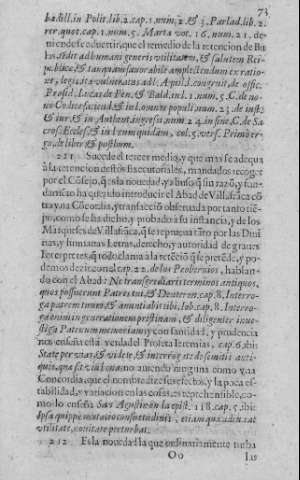 73
badill. in Polit. lib. 2. cap. 1. num. 2. & 3. Parlad. lib. 2.
rer. quot. cap. 1. num. 5. Marta vot. 16. num. 21. de
donde se deduce, que el remedio de la retencion de Bu
las, tendit ad humani generis utilitatem, & salutem Rei-
publicæ, & tanquam favorabile amplectendum ex ratio-
ne, legis ita vulneratas ad l. Aquil. congruit, de offic.
Præsid. Lucas de Pen. & Bald. in l. 1. num. 5. C. de no-
vo Codice faciend. & in l. omnes populi, num. 23. de iust.
& iur. & in Authent. ingressi num. 24. in fine, C. de Sa-
cros. Eccles. & in l. cum quidam, col. 5. vers. Primo er-
go, de liber. & posthum.
211 Sucede el tercer medio, y que mas se adequa
à la retencion destos Executoriales, mandados recoger
por el Cõsejo, q̃ es la novedad, y abuso q̃ sin razõ, y fun-
damẽto ha querido introducir el Abad de Villafrãca cõ-
tra vna Cõcordia, y transaccion observada por tanto tiẽ-
po, como se ha dicho, y probado à su instancia, y de los
Marqueses de Villafrãca, q̃ se reprueua tãto por las Divi
nas, y humanas Letras, derecho, y autoridad de graues
Interpretes, q̃ todo clama à la retẽciõ q̃ se pretẽde, y po-
demos dezir con el cap. 22. de los Proberbios, hablan-
do con el Abad: Ne transgrediaris terminos antiquos,
quos posuerunt Patres tui, & Deuteron. cap. 8. Interro-
ga patrem tuum, & anuntiabit tibi, Iob. cap. 8. Interro-
ga enim generationem pristinam, & diligenter inves-
tiga Patrum memoriam y con santidad, y prudencia
nos enseña esta verdad el Profeta Ieremias, cap. 6. ibi:
State per vias, & videte, & interrogate de semitis anti-
quis, quæ sit via bona no auiendo ninguna como vna
Concordia, que el nombre dize sus efectos, y la poca es-
tabilidad, y variacion en las cosas, es reprehensible, co-
mo lo enseña San Agustin en la epist. 118. cap. 5. ibi:
Ipsa quippe mutatio consuetudinis, etiam quæ adiuvat
vtilitate, novitate perturbat.
212 Es la novedad la que ordinariamente turba
Oo las